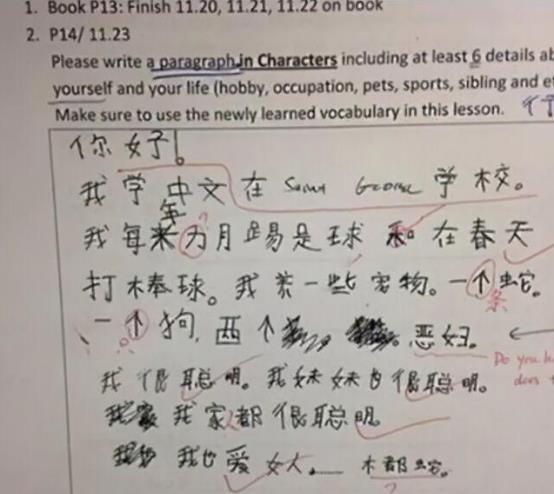 1. Book P13: Finish 11.20, 11.21, 11.22 on book
2. P14/ 11.23
Please write a paragraph in Characters including at least 6 details ab
yourself and your life (hobby, occupation, pets, sports, sibling and e
Make sure to use the newly learned vocabulary in this lesson.
你好!
我学中文在 George 学校。
年
我每 月踢是球和在春天
打棒球。我养一些宠物。一个蛇。
条
一个狗, 西个 恶妇。
Do you
does
我很聪明。我妹妹也很聪明。
我家都很聪明。
我也爱女人 木都蛇。